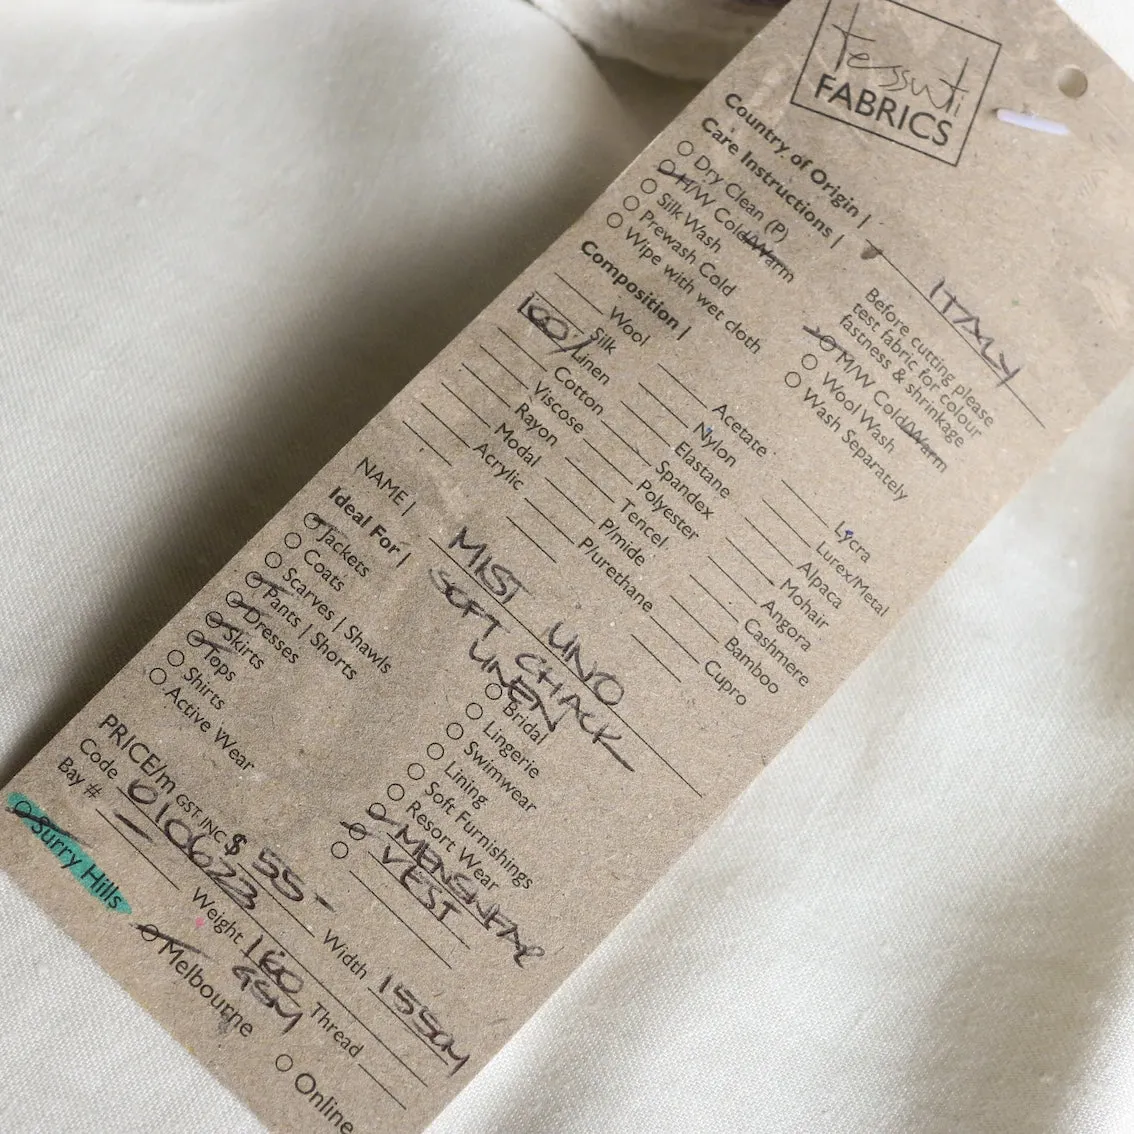 Tessuti
FABRICS
Country of Origin | ITALY
Care Instructions |
Dry Clean (P)
H/W Cold/Warm
Silk Wash
Prewash Cold
Wipe with wet cloth
Before cutting please
test fabric for colour
fastness & shrinkage
M/W Cold/Warm
Wool Wash
Wash Separately
Composition |
Wool
Silk
100% Linen
Cotton
Viscose
Rayon
Modal
Acrylic
Acetate
Nylon
Elastane
Spandex
Polyester
Tencel
P/mide
P/urethane
Lycra
Lurex/Metal
Alpaca
Mohair
Angora
Cashmere
Bamboo
Cupro
NAME | MIST UNO
SOFT CHACK
LINEN
Ideal For |
Jackets
Coats
Scarves | Shawls
Pants | Shorts
Dresses
Skirts
Tops
Shirts
Active Wear
Bridal
Lingerie
Swimwear
Lining
Soft Furnishings
Resort Wear
MENSWEAR
VEST
PRICE/m GST. INC $ 55-
Code 010623 Width 155CM
Bay # - Weight 160 GSM Thread
Surry Hills
Melbourne
Online